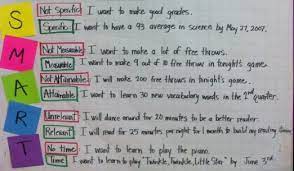 S
Not Specific I want to make good grades.
Specific I want to have a 93 average in science by May 27, 2007.
M
Not Measurable I want to make a lot of free throws.
Measurable I want to make 9 out of 10 free throws in tonight's game.
A
Not Attainable I will make 200 free throws in tonight's game.
Attainable I want to learn 30 new vocabulary words in the 2nd quarter.
R
Unrelated I will dance around for 20 minutes to be a better reader.
Relevant I will read for 25 minutes per night for 1 month to build my reading
T
No time I want to learn to play the piano.
Time I want to learn to play "Twinkle, Twinkle, Little Star" by June 3rd.